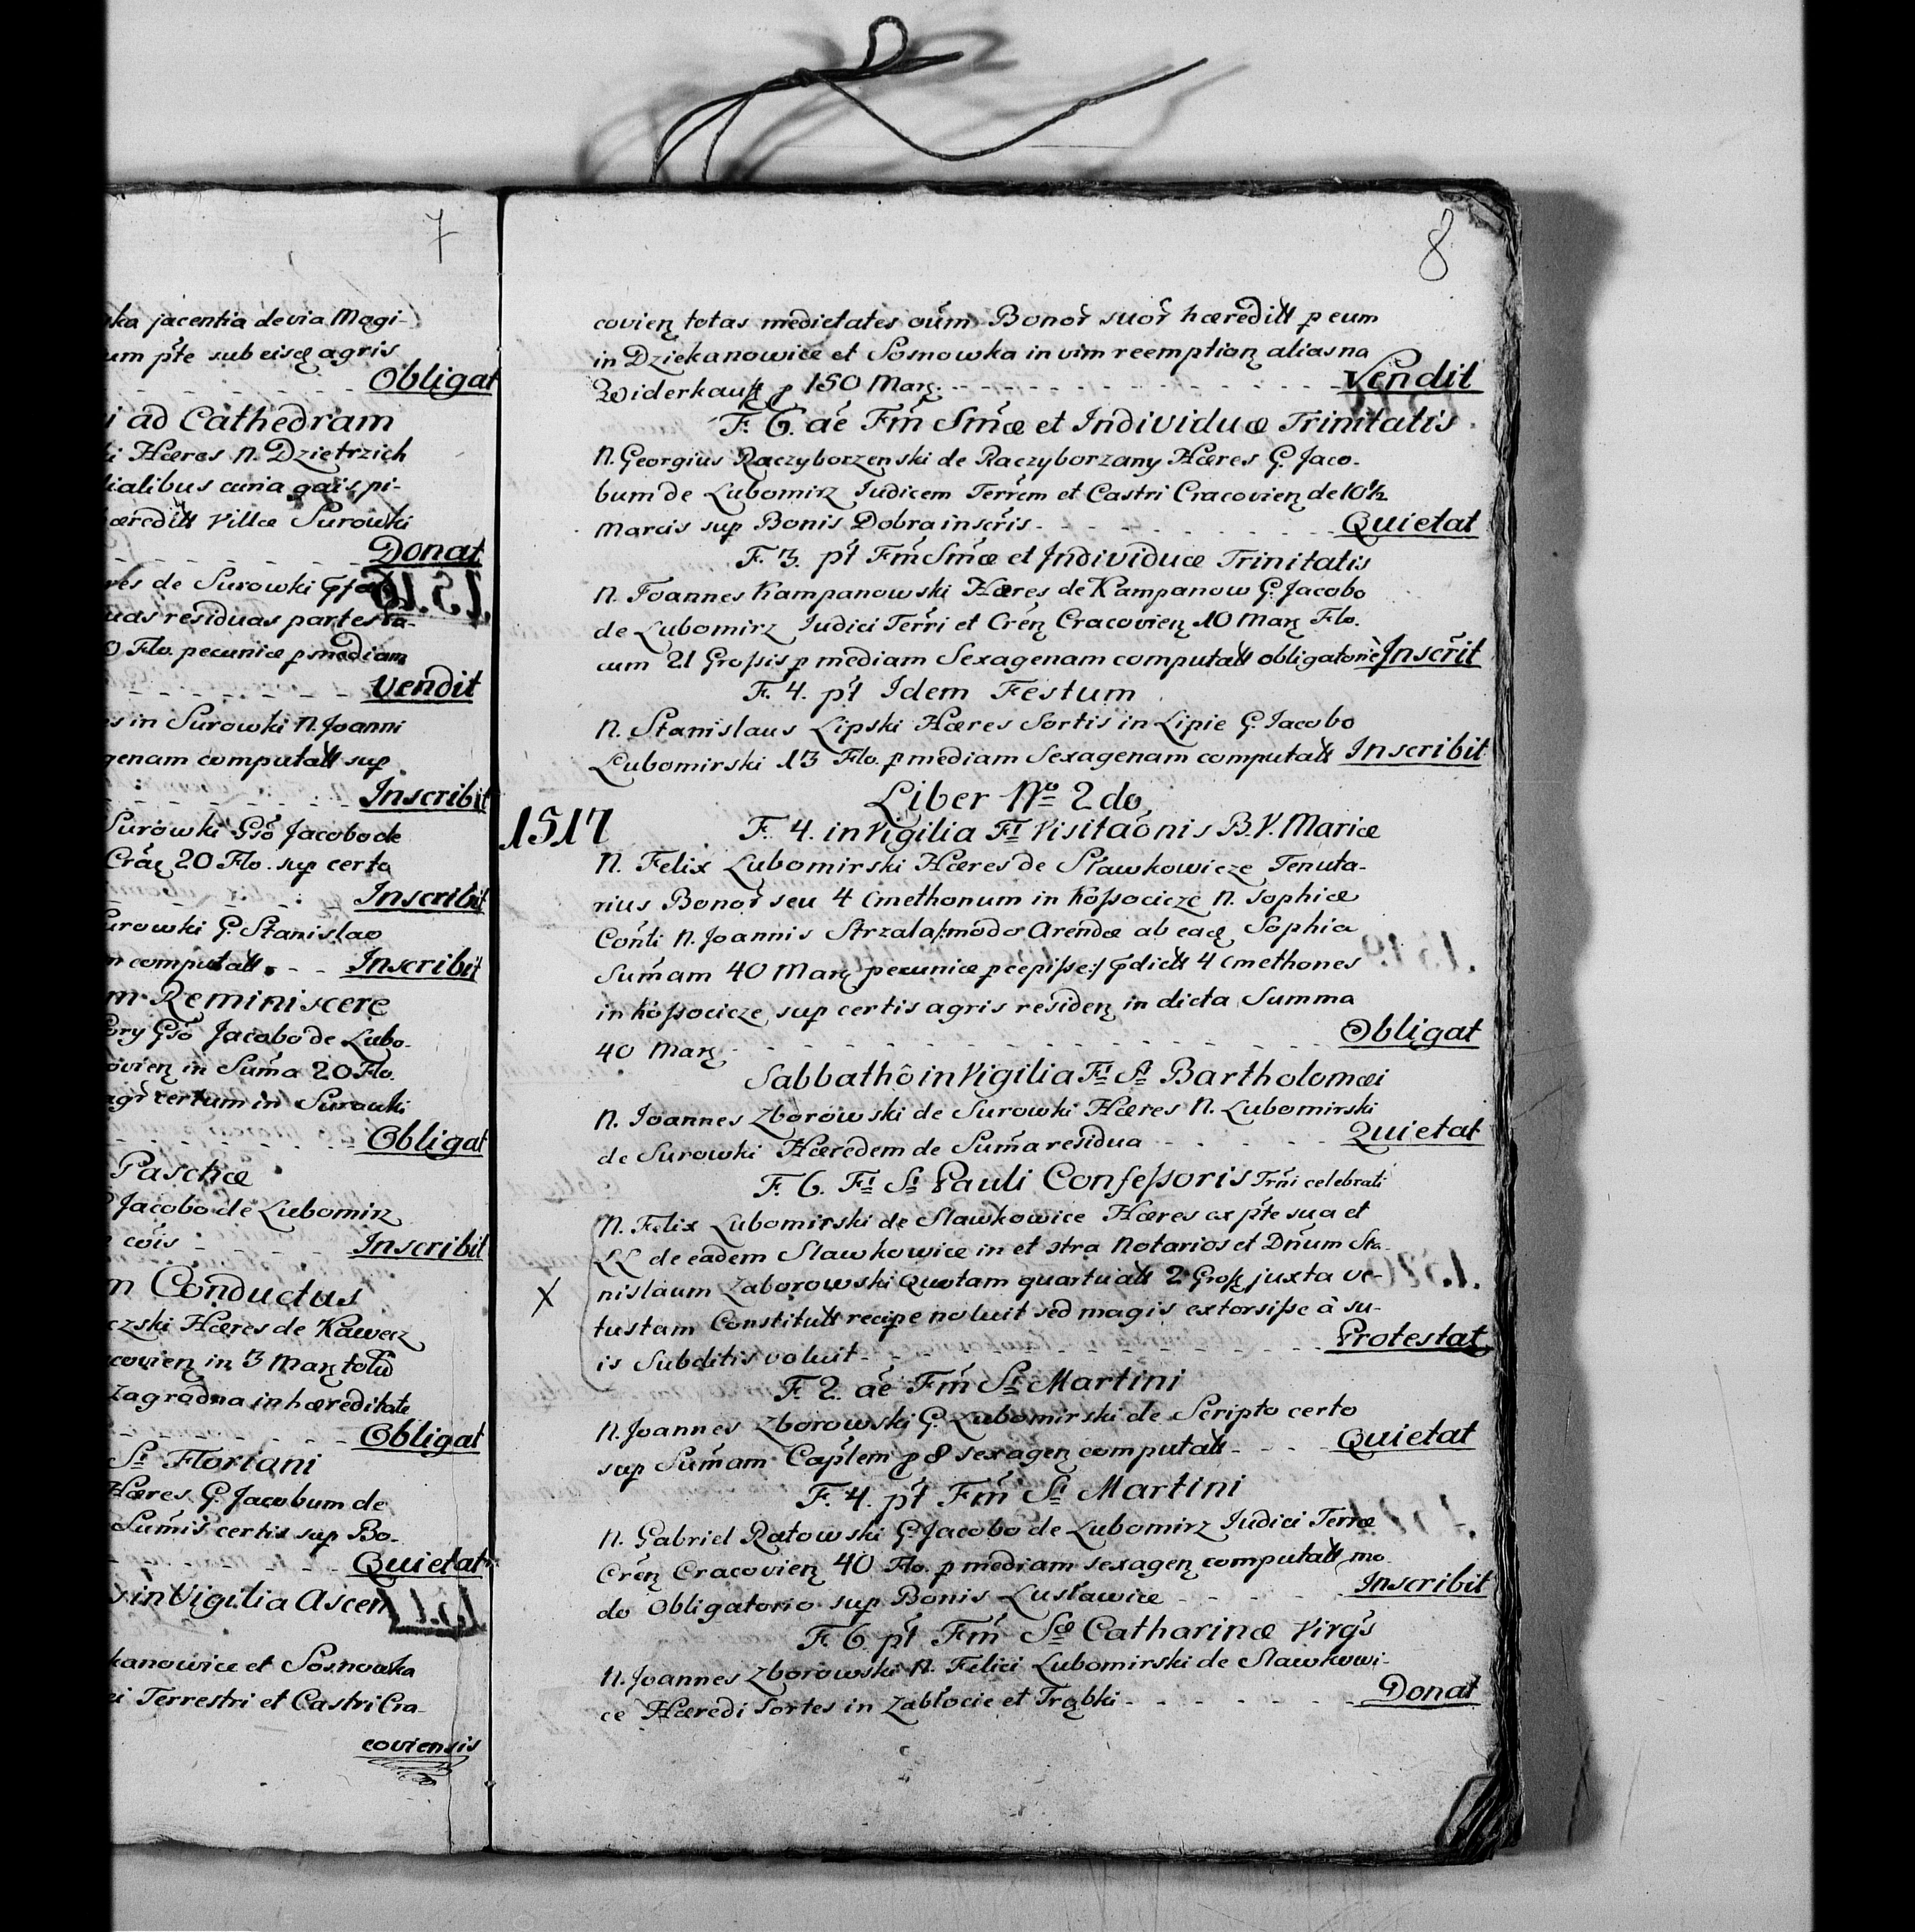 7
ka jacentia de via Magi-
um pte sub eisd agris
Obligat
i ad Cathedram
i Hæres N. Dzietrzich
ialibus curia qais pi-
æreditt Villæ Surowki
Donat
res de Surowki
uas residuas partes
0 Flo. pecuniæ p mediam
Vendit
s in Surowki N. Joanni
genam computatt sup
Inscribit
Surowki Gso Jacobo de
20 Flo. sup certo
Inscribit
urowki G. Stanislao
n computatt. - - Inscribit
m Reminiscere
ory Gso Jacobo de Lubo-
ovien in Suma 20 Flo.
agr certum in Surowki
Obligat
Paschæ
Jacobo de Lubomirz
cois - - - Inscribit
n Conductus
czski Hæres de Kawecz
covien in 3 Marc
Zagradna in hæreditate
Obligat
Sti Floriani
Hæres G. Jacobum de
Sumis certis sup Bo-
Quietat
in Vigilia Ascen
kanowice et Sosnowka
ei Terrestri et Castri Cra-
coviensis
8
covien totas medietates oum Bonor suor hæreditt p eum
in Dziekanowice et Sosnowka in vim reemptian alias na
Widerkauff p 150 Marc. - - - Vendit
F. 6. ae Fm Smæ et Individuæ Trinitatis
N. Georgius Raczyborzenski de Raczyborzany Hæres G. Jaco-
bum de Lubomirz Iudicem Terrem et Castri Cracovien de 10½
Marcis sup Bonis Dobra inscris - - - Quietat
F. 3. pt Fm Smæ et Individuæ Trinitatis
N. Joannes Kampanowski Hæres de Kampanow G. Jacobo
de Lubomirz Iudici Terri et Cren Cracovien 10 Marc Flo.
cum 21 Grossis p mediam Sexagenam computatt obligatorie Inscrit
F. 4. pt Idem Festum
N. Stanislaus Lipski Hæres Sortis in Lipie G. Iacobo
Lubomirski 13 Flo. p mediam Sexagenam computatt Inscribit
Liber No 2do
1517
F. 4. in Vigilia Fti Visitaonis B. V. Mariæ
N. Felix Lubomirski Hæres de Sławkowicze Tenuta-
rius Bonor seu 4 Cmethonum in Kossocicze N. Sophiæ
Conti N. Joannis Strzala /: modo Arendæ ab ead Sophia
Sumam 40 Marc pecuniæ pcepisse :/ dictt 4 Cmethones
in Kossocicze sup certis agris residen in dicta Summa
40 Marc - - - Obligat
Sabbathô in Vigilia Fti Sti Bartholomæi
N. Joannes Zborowski de Surowki Hæres N. Lubomirski
de Surowki Hæredem de Suma residua - - - Quietat
F. 6. Fti Sti Pauli Confessoris Trni celebrati
N. Felix Lubomirski de Slawkowice Hæres ex pte sua et
LL de eadem Slawkowice in et stra Notarios et Dnum Sta-
X
nislaum Zaborowski Quotam quartuatt 2 Gross juxta ve-
tustam Constitutt recipe noluit sed magis extorsisse à su-
is Subditis voluit - - - Protestat
F. 2. ae Fm Sti Martini
N. Joannes Zborowski G. Lubomirski de Scripto certo
sup Sumam Captem p 8 sexagen computatt - - - Quietat
F. 4. pt Fm Sti Martini
N. Gabriel Ratowski G. Jacobo de Lubomirz Iudici Terræ
Cren Cracovien 40 Flo. p mediam sexagen computatt mo-
do Obligatorio sup Bonis Lusławice - - - Inscribit
F. 6. pt Fm Sæ Catharinæ Virgs
N. Joannes Zborowski N. Felici Lubomirski de Slawkowi-
ce Hæredi Sortes in Zabłocie et Trąbki - - - Donat